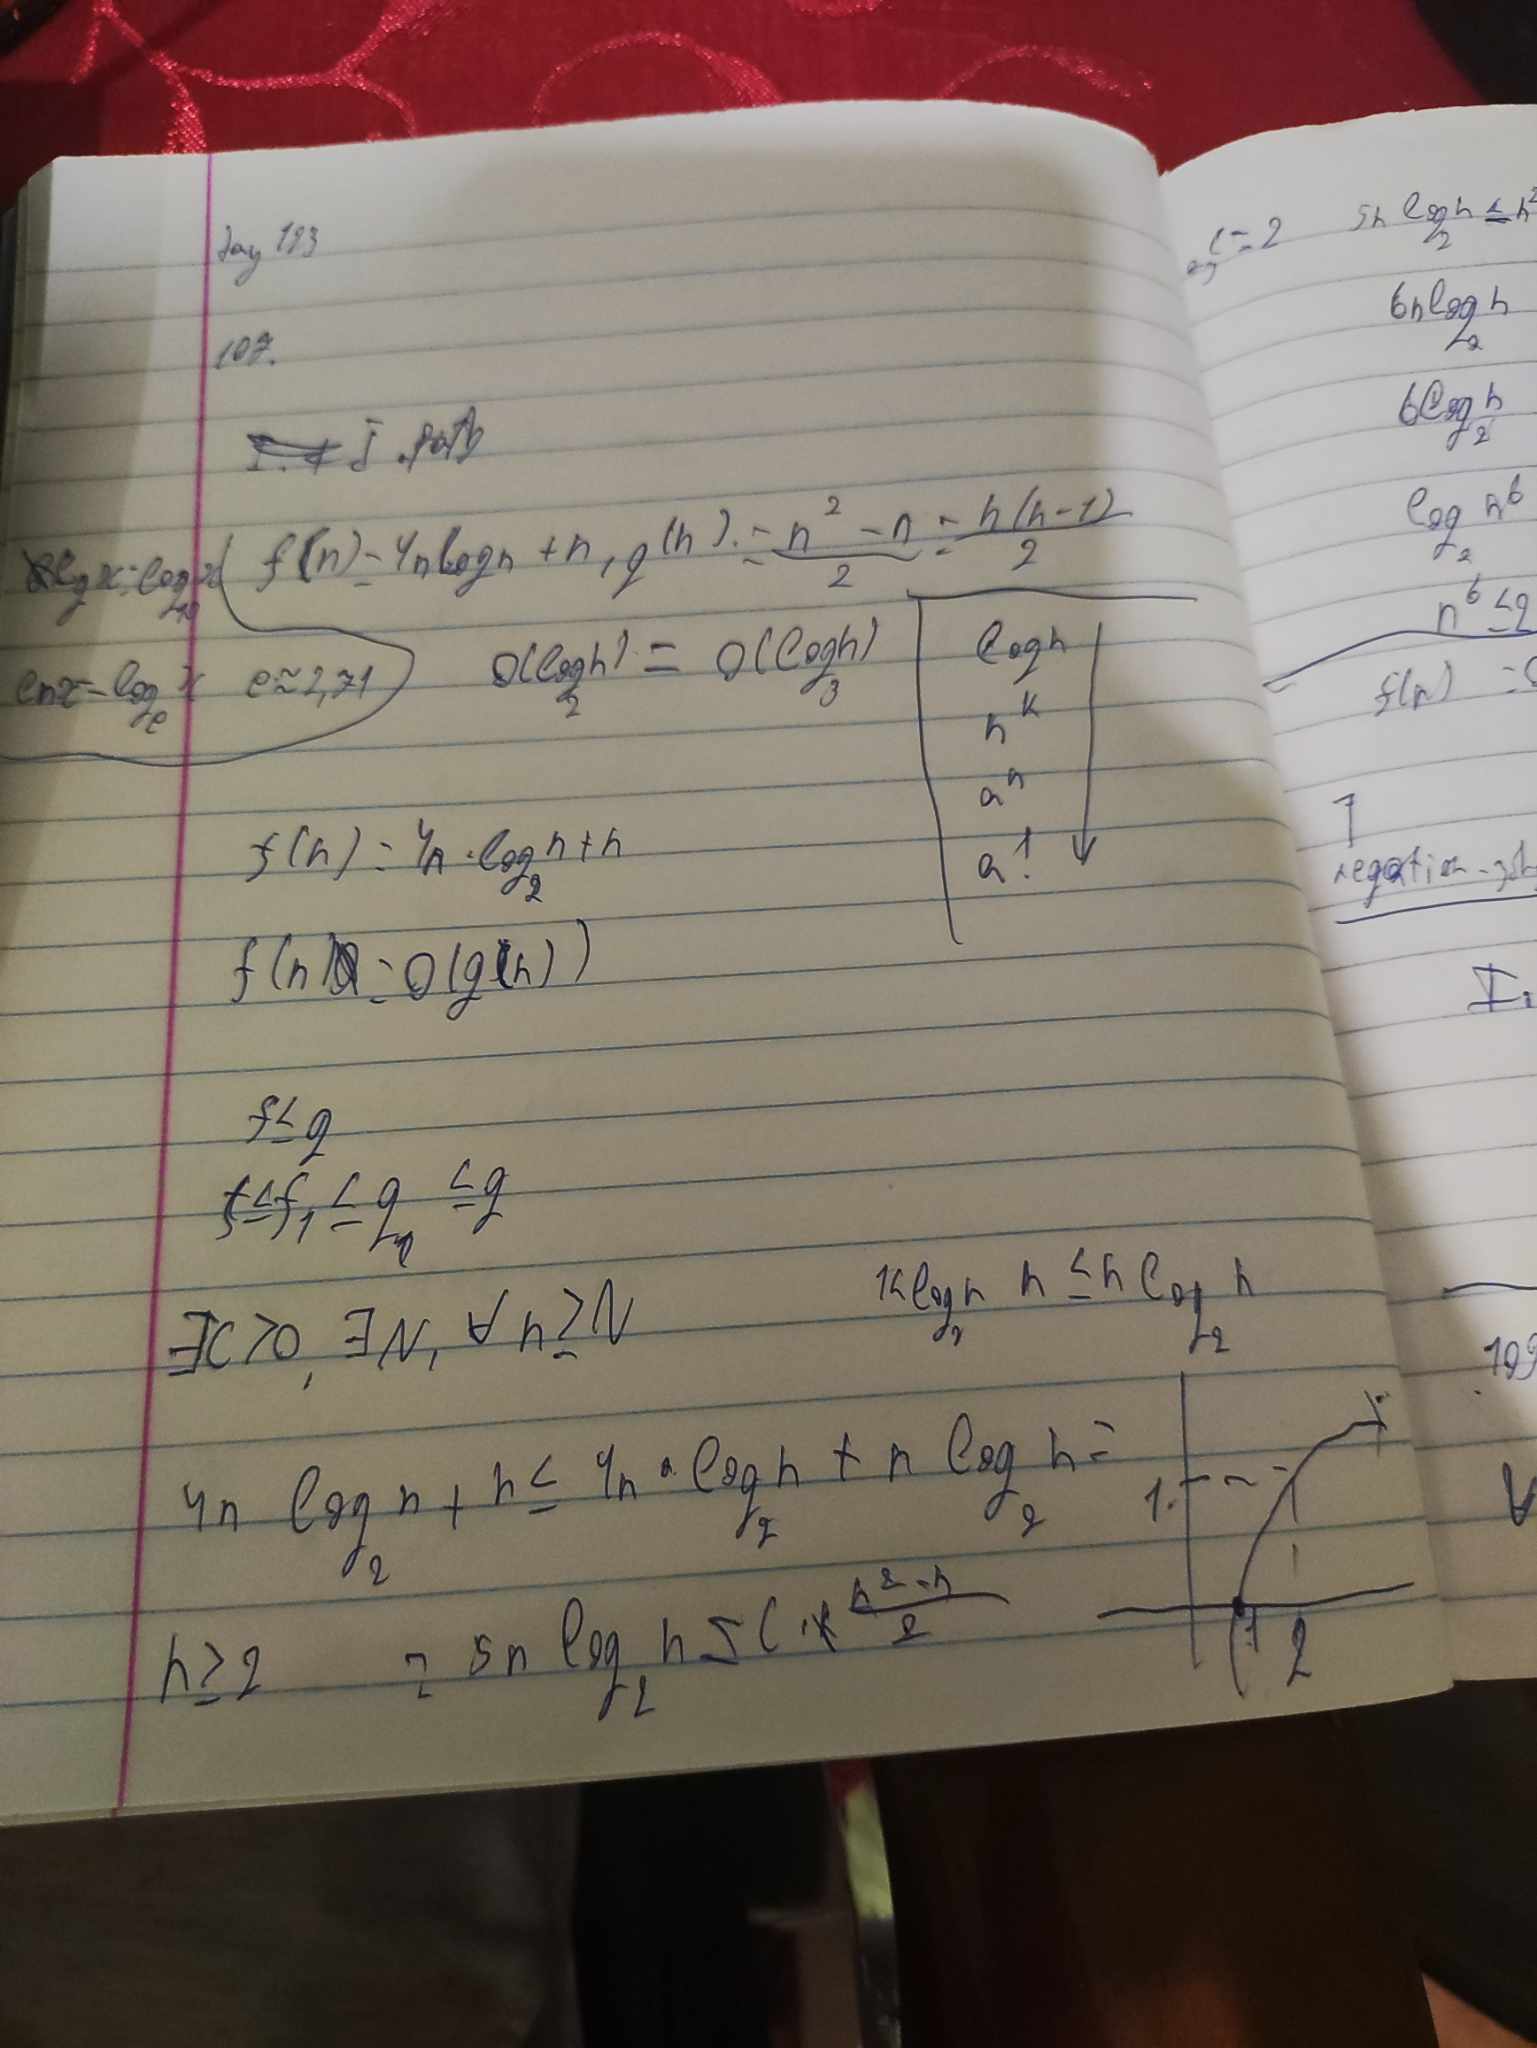 Day 193
107.
I. part
f(n) = 4n logn + n, g(n) = n² - n / 2 = n(n-1) / 2
lg x = log₁₀ x
ln x = logₑ x e ≈ 2,71
O(log₂ n) = O(log₃ n)
log n
n^k
a^n
a!
f(n) = 4n · log₂ n + n
f(n) = O(g(n))
f ≤ g
f ≤ f₁ ≤ g₁ ≤ g
∃C>0, ∃N, ∀n ≥ N
n ≤ n log₂ n
4n log₂ n + n ≤ 4n · log₂ n + n log₂ n =
n ≥ 2 = 5n log₂ n ≤ C · n² - n / 2
1
1 2
c = 2 5n log₂ n ≤ n²
6n log₂ n
6 log₂ n
log₂ n⁶
n⁶ ≤ 2
f(n) =
negation
I.
∀